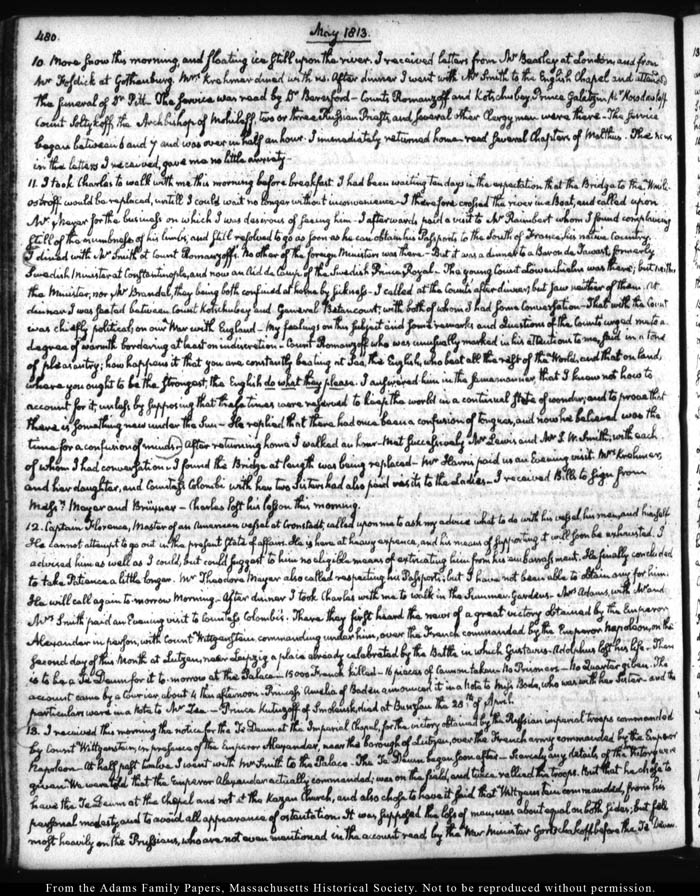 480.
May 1813.
10. More snow this morning, and floating ice still upon the river. I received letters from Mr Beasley at London, and from
Mr Fosdick at Gothenburg. Mrs Krehmer dined with us. After dinner I went with Mr Smith to the English Chapel and attended
the funeral of Dr Pitt. The service was read by Dr Beresford— Counts Romanzoff and Kotchubey, Prince Galitzin, Mr
Count Soltykoff, the Archbishop of Mohiloff, two or three Russian Priests, and several other Clergymen were there— The service
began between 6 and 7 and was over in half an hour. I immediately returned home— read several Chapters of Malthus. The news
in the letters I received, gave me no little anxiety—
11. I took Charles to walk with me this morning before breakfast. I had been waiting ten days in the expectation that the Bridge to the
ostroff would be replaced, until I could wait no longer without inconvenience— I therefore crossed the river in a Boat, and called upon
Mr Meyer for the business on which I was desirous of seeing him— I afterwards paid a visit to Mr Raimbert whom I found complaining
still of the numbness of his limbs, and still resolved to go as soon as he can obtain his Passports to the South of France, his native Country.
I dined with Mr Smith at Count Romanzoff's. No other of the foreign Ministers was there— But it was a dinner to a Baron de Tawast, formerly
Swedish Minister at Constantinople, and now an Aid de Camp of the Swedish Prince Royal— The young Count Lowenhielm was there; but neither
the Minister, nor Mr Brandel, they being both confined at home by sickness— I called at the Counts after dinner; but saw neither of them. At
dinner I was seated between Count Kotschubey and General Betancourt; with both of whom I had some Conversation— That with the Count
was chiefly political; on our War with England— My feelings on this subject and some remarks and questions of the Counts urged me to a
degree of warmth bordering at least on indiscretion— Count Romanzoff who was unusually marked in his attentions to me, said in a tone
of pleasantry; how happens it that you are constantly beating at Sea, the English, who beat all the rest of the World, and that on land,
where you ought to be the strongest, the English do what they please. I answered him in the same manner that I knew not how to
account for it, unless by supposing that these times were reserved to keep the world in a continual state of wonder, and to prove that
there is something new under the Sun— He replied that there had once been a confusion of tongues, and now he believed was the
time for a confusion of minds— After returning home I walked an hour— Met successively Mr Lewis and Mr J. W. Smith, with each
of whom I had conversation— I found the Bridge at length was being replaced— Mr Harris paid us an Evening visit. Mrs Krehmer,
and her daughter, and Countess Colombi with her two Sisters had also paid visits to the Ladies— I received Bills to sign from
Messrs Meyer and Brüxner— Charles lost his lesson this morning.
12. Captain Florence, Master of an American vessel at Cronstadt, called upon me to ask my advice what to do with his vessel his men, and himself
He cannot attempt to go out in the present State of affairs. He is here at heavy expence, and his means of supporting it will soon be exhausted. I
advised him as well as I could, but could suggest to him no eligible means of extricating him from his embarrassment. He finally concluded
to take Patience a little longer. Mr Theodore Meyer also called respecting his Passports; but I have not been able to obtain any for him.
He will call again to-morrow Morning— After dinner I took Charles with me to walk in the Summer Gardens— Mrs Adams, with Mr and
Mrs Smith paid an Evening visit to Countess Colombi's. There they first heard the news of a great victory obtained by the Emperor
Alexander in person, with Count Wittgenstein commanding under him, over the French commanded by the Emperor Napoleon, on the
second day of this Month at Lutzen, near Leipzig a place already celebrated by the Battle in which Gustavus Adolphus lost his life. There
is to be a Te Deum for it to-morrow at the Palace— 15000 French killed— 16 pieces of Cannon taken. No Prisoners— No Quarter given. The
account came by a Courier about 4 this afternoon. Princess Amelia of Baden announced it in a Note to Miss Bode, who was with her Sister— and the
particulars were in a Note to Mr Zea— Prince Kutuzoff of Smolensk, died at Buntzlau the 28th of April.
13. I received this morning the notice for the Te Deum at the Imperial Chapel, for the victory obtained by the Russian imperial troops commanded
by Count Wittgenstein, in presence of the Emperor Alexander, near the borough of Lutzen, over the French army commanded by the Emperor
Napoleon— At half past twelve I went with Mr Smith to the Palace— The Te Deum began soon after— Scarcely any details of the Victory were
given. We were told that the Emperor Alexander actually commanded; was on the field, and twice rallied the troops. But that he chose to
have the Te Deum at the Chapel and not at the Kazan Church, and also chose to have it said that Wittgenstein commanded, from his
personal modesty, and to avoid all appearance of ostentation. It was supposed the loss of men, was about equal on both sides; but fell
most heavily on the Prussians, who are not even mentioned in the account read by the War Minister Gortschakoff before the Te Deum.
From the Adams Family Papers, Massachusetts Historical Society. Not to be reproduced without permission.